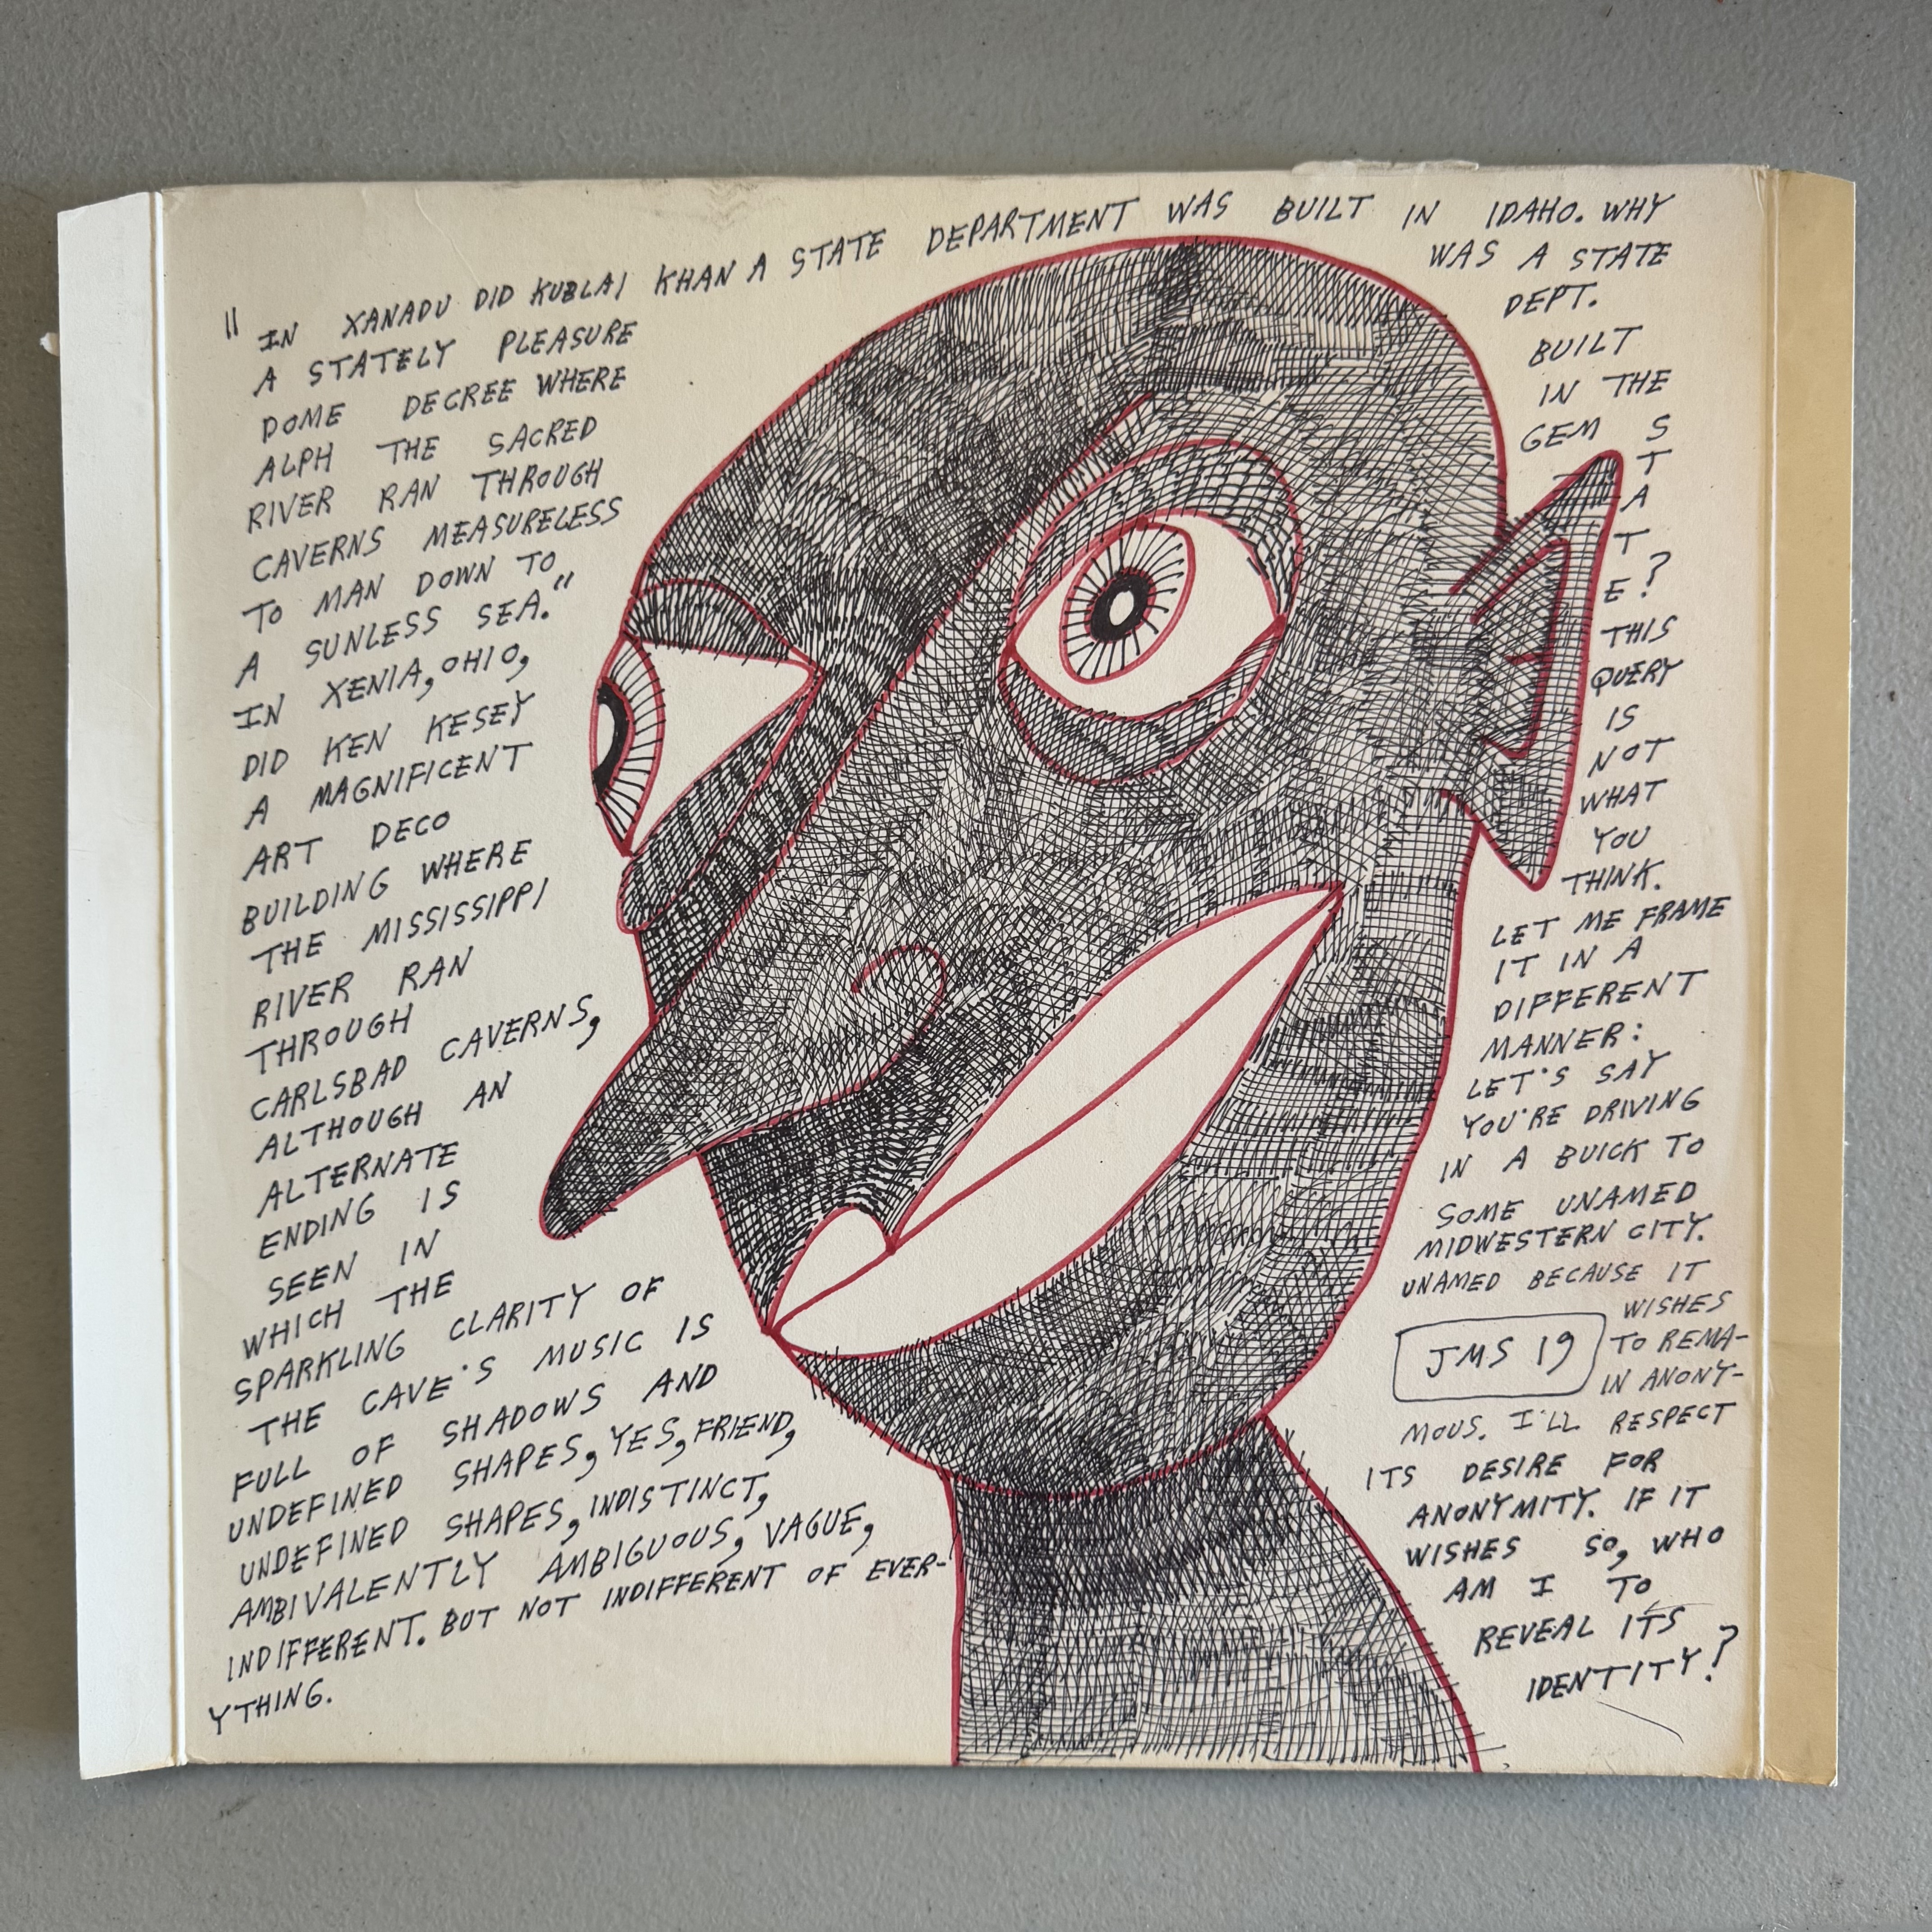 " IN XANADU DID KUBLAI KHAN
A STATELY PLEASURE
DOME DECREE WHERE
ALPH THE SACRED
RIVER RAN THROUGH
CAVERNS MEASURELESS
TO MAN DOWN TO
A SUNLESS SEA."
IN XENIA, OHIO,
DID KEN KESEY
A MAGNIFICENT
ART DECO
BUILDING WHERE
THE MISSISSIPPI
RIVER RAN
THROUGH
CARLSBAD CAVERNS,
ALTHOUGH AN
ALTERNATE
ENDING IS
SEEN IN
WHICH THE
SPARKLING CLARITY OF
THE CAVE'S MUSIC IS
FULL OF SHADOWS AND
UNDEFINED SHAPES, YES, FRIEND,
UNDEFINED SHAPES, INDISTINCT,
AMBIVALENTLY AMBIGUOUS, VAGUE,
INDIFFERENT. BUT NOT INDIFFERENT OF EVER-
YTHING.
A STATE DEPARTMENT WAS BUILT IN IDAHO. WHY
WAS A STATE
DEPT.
BUILT
IN THE
GEM S
T
A
T
E?
THIS
QUERY
IS
NOT
WHAT
YOU
THINK.
LET ME FRAME
IT IN A
DIFFERENT
MANNER:
LET'S SAY
YOU'RE DRIVING
IN A BUICK TO
SOME UNAMED
MIDWESTERN CITY.
UNAMED BECAUSE IT
WISHES
TO REMA-
IN ANONY-
MOUS. I'LL RESPECT
ITS DESIRE FOR
ANONYMITY. IF IT
WISHES SO, WHO
AM I TO
REVEAL ITS
IDENTITY?
JMS 19